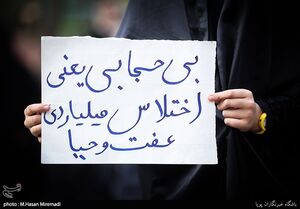 بی حجابی یعنی
اختلاس میلیاردی
عفت و حیا
photo : M.Hasan Miremadi
باشگاه خبرنگاران پویا